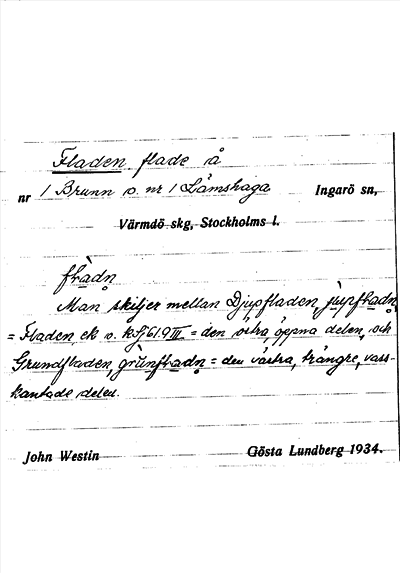 Fladen flade å
nr 1 Brunn o. nr 1 Lämshaga Ingarö sn,
Värmdö skg, Stockholms l.
fɫàdn̥
Man skiljer mellan Djupfladen, jùpfɫadn̥
= Fladen ek o. k Sj 61.9 III = den östra, öppna delen, och
Grundfladen, grùnfɫadn̥ = den västra, trängre, vass-
kantade delen.
John Westin Gösta Lundberg 1934.